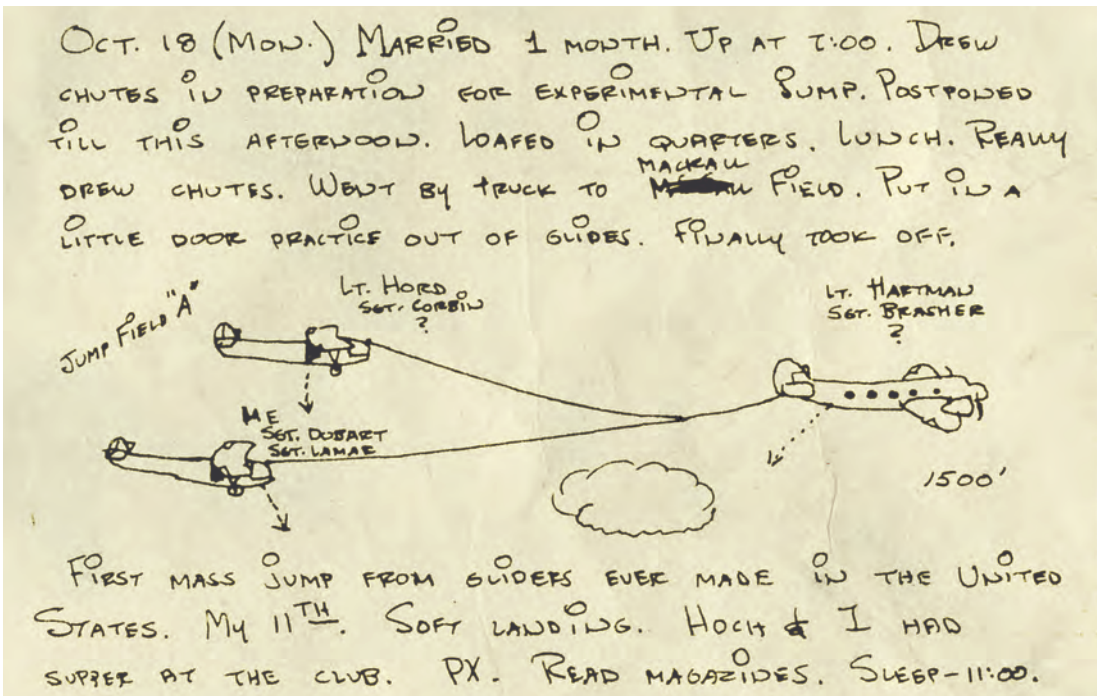 OCT. 18 (MON.) MARRIED 1 MONTH. UP AT 7:00. DREW
CHUTES IN PREPARATION FOR EXPERIMENTAL JUMP. POSTPONED
TILL THIS AFTERNOON. LOAFED IN QUARTERS. LUNCH. REALLY
DREW CHUTES. WENT BY TRUCK TO MACKALL FIELD. PUT IN A
LITTLE DOOR PRACTICE OUT OF GLIDES. FINALLY TOOK OFF.
JUMP FIELD "A"
LT. HORD
SGT. CORBIN
?
LT. HARTMAN
SGT. BRASHER
?
ME
SGT. DOBART
SGT. LAMAR
1500'
FIRST MASS JUMP FROM GLIDERS EVER MADE IN THE UNITED
STATES. MY 11TH. SOFT LANDING. HOCH & I HAD
SUPPER AT THE CLUB. PX. READ MAGAZINES. SLEEP-11:00.